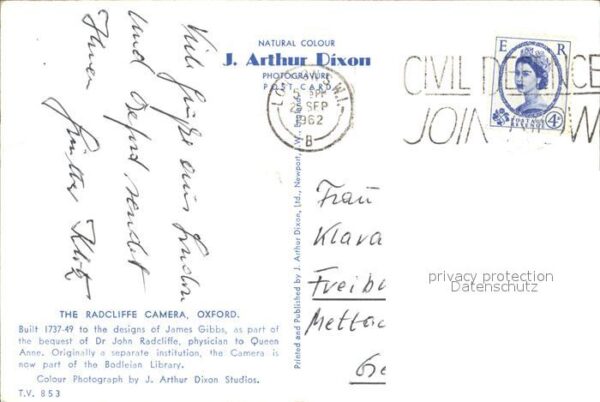 NATURAL COLOUR
J. Arthur Dixon
PHOTOGRAVURE
POST CARD
LONDON S.W.1.
SEP
1962
B
CIVIL DEFENCE
JOIN NOW
E R
POSTAGE
REVENUE
4D
Viele Grüße aus London
und Oxford sendet
Ihnen
Günther Klotz
Frau
Klara
Freibu
Mettac
Ge
privacy protection
Datenschutz
Printed and Published by J. Arthur Dixon, Ltd., Newport, I.W., England
THE RADCLIFFE CAMERA, OXFORD.
Built 1737-49 to the designs of James Gibbs, as part of
the bequest of Dr John Radcliffe, physician to Queen
Anne. Originally a separate institution, the Camera is
now part of the Bodleian Library.
Colour Photograph by J. Arthur Dixon Studios.
T.V. 853